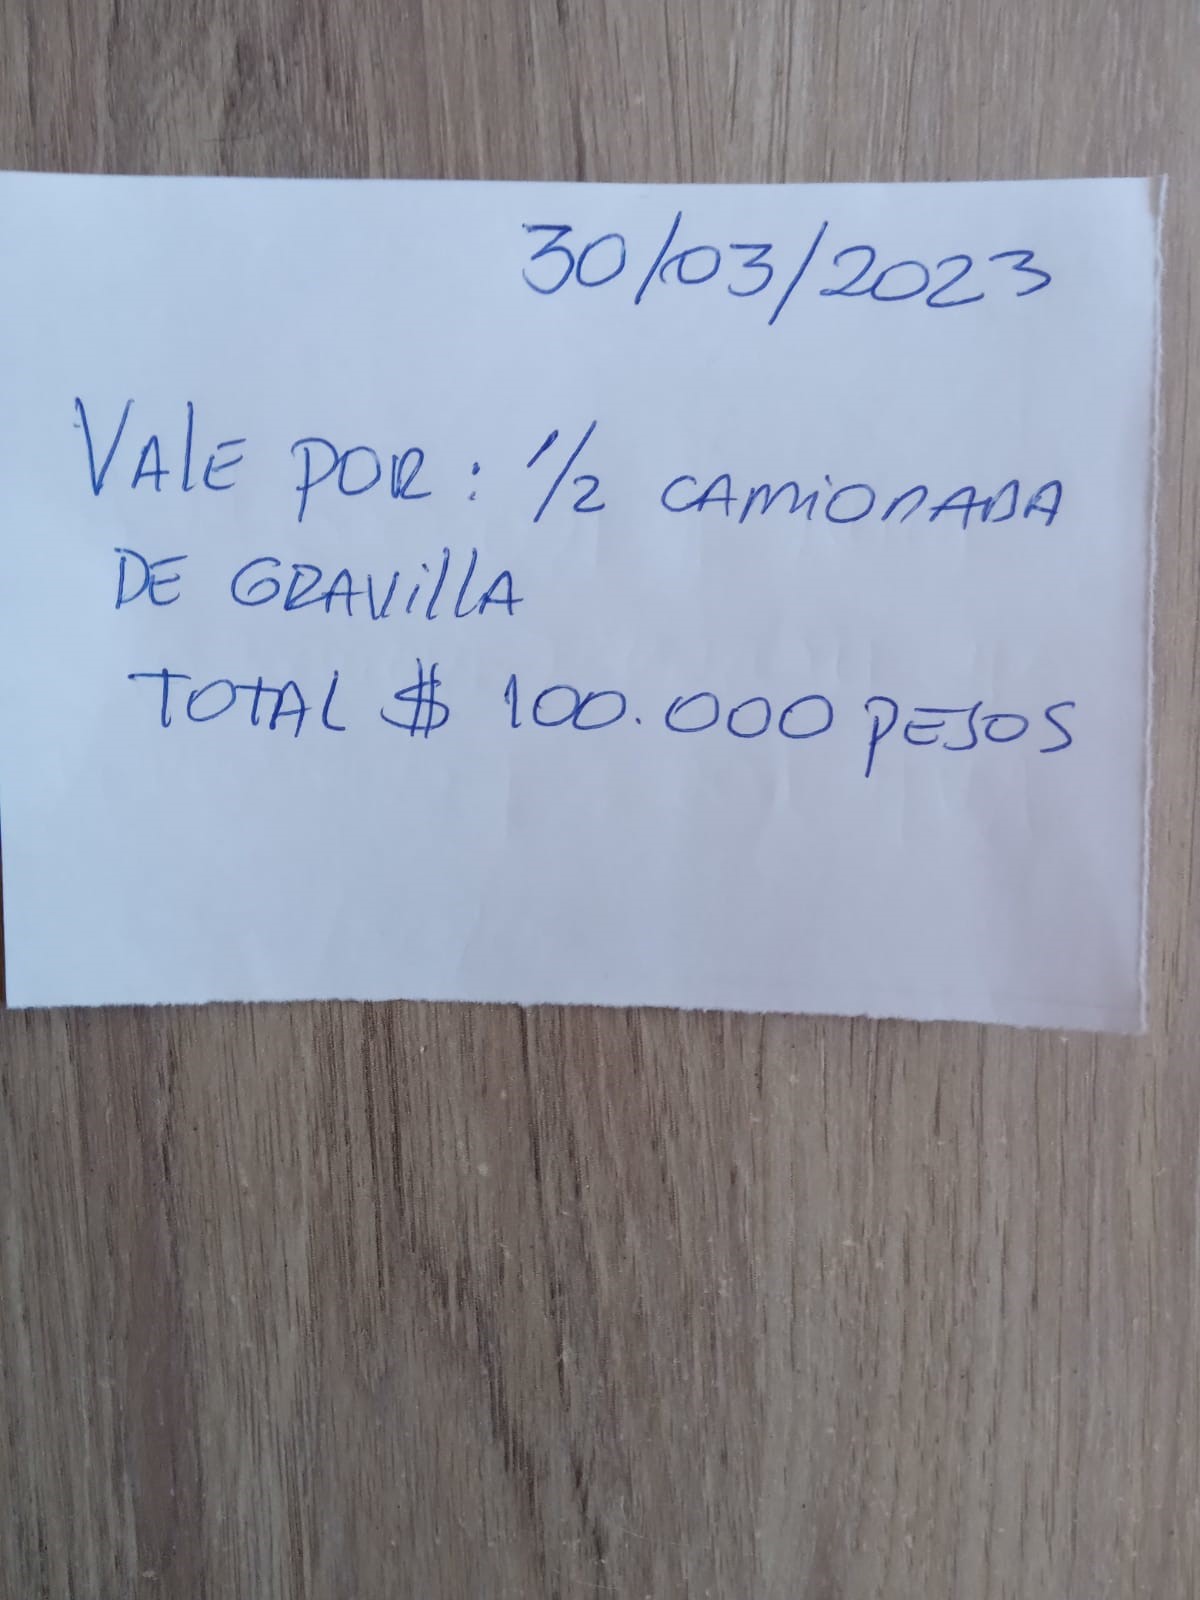 30/03/2023
VALE POR: 1/2 CAMIONADA
DE GRAVILLA
TOTAL $ 100.000 PESOS